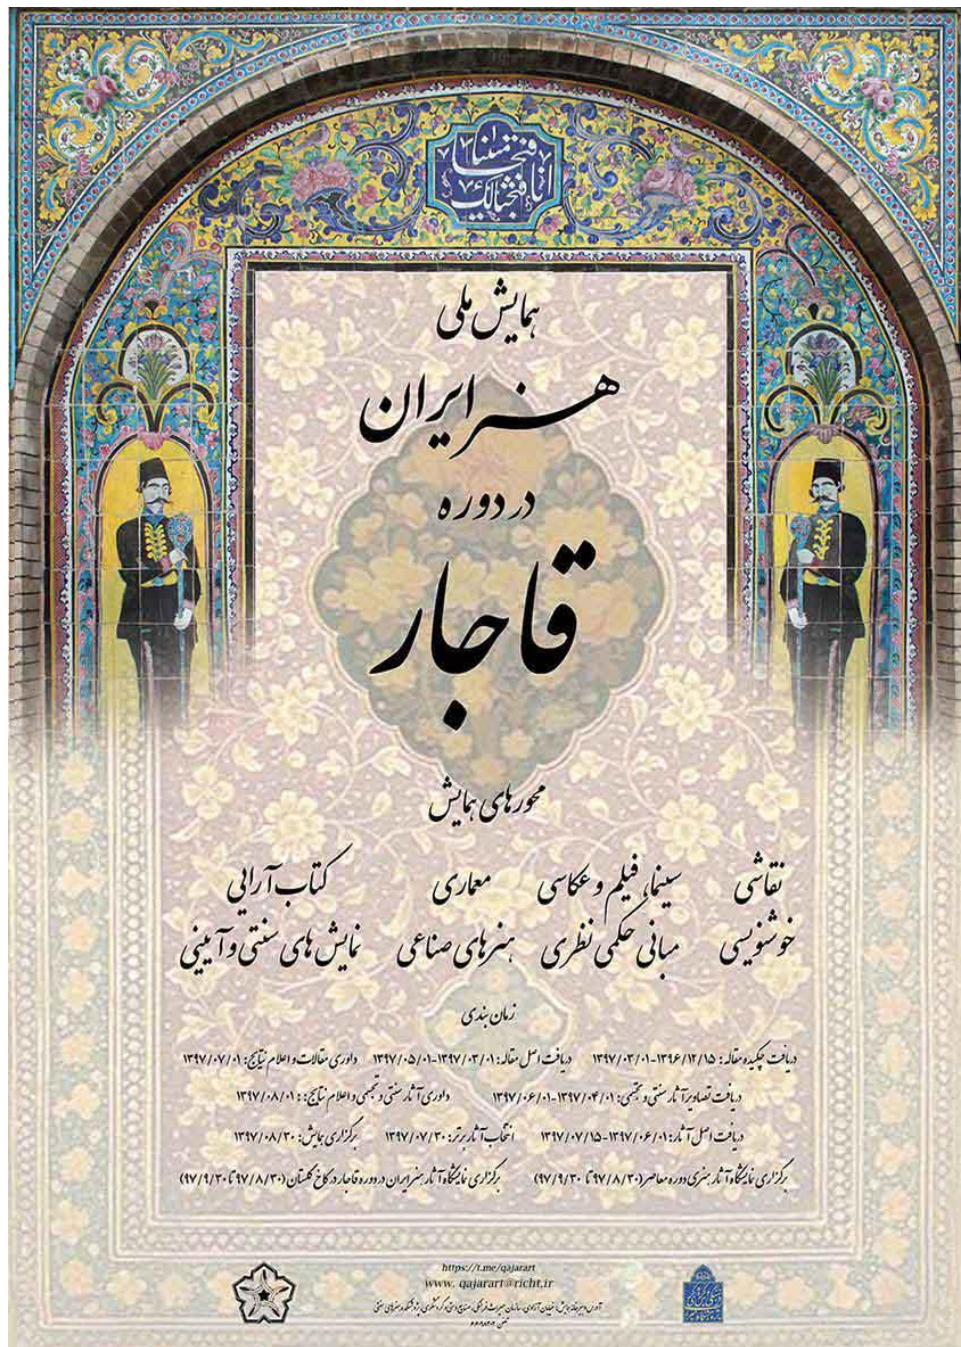 انا فتحنا
لک فتحا مبینا
همایش ملی
هنر ایران
در دوره
قاجار
محورهای همایش
نقاشی سینما، فیلم و عکاسی معماری کتاب آرایی
خوشنویسی مبانی حکمی نظری هنرهای صناعی نمایش های سنتی و آیینی
زمان بندی
دریافت چکیده مقاله: ۱۳۹۶/۱۲/۱۵-۱۳۹۷/۰۳/۰۱ دریافت اصل مقاله: ۱۳۹۷/۰۳/۰۱-۱۳۹۷/۰۵/۰۱ داوری مقالات و اعلام نتایج: ۱۳۹۷/۰۷/۰۱
دریافت تصاویر آثار سنتی و تجسمی: ۱۳۹۷/۰۴/۰۱-۱۳۹۷/۰۶/۰۱ داوری آثار سنتی و تجسمی و اعلام نتایج: : ۱۳۹۷/۰۸/۰۱
دریافت اصل آثار: ۱۳۹۷/۰۶/۰۱-۱۳۹۷/۰۷/۱۵ انتخاب آثار برتر: ۱۳۹۷/۰۷/۳۰ برگزاری همایش: ۱۳۹۷/۰۸/۳۰
برگزاری نمایشگاه آثار هنری دوره معاصر (۹۷/۸/۳۰ تا ۹۷/۹/۳۰) برگزاری نمایشگاه آثار هنر ایران در دوره قاجار در کاخ گلستان (۹۷/۸/۳۰ تا ۹۷/۹/۳۰)
https://t.me/qajarart
www. qajarart@richt.ir
آدرس دبیرخانه همایش: خیابان آزادی، سازمان میراث فرهنگی، صنایع دستی و گردشگری، پژوهشکده هنرهای سنتی
تلفن: